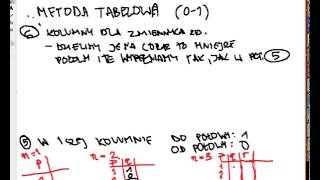 METODA TABELOWA (0-1)
⑥ KOLUMNY DLA ZMIENNYCH ZD.
- DZIELIMY JĄ NA CORAZ TO MNIEJSZE
POŁOWY I JE WYPEŁNIAMY TAK, JAK W PKT. ⑤
⑤ W 1-SZEJ KOLUMNIE DO POŁOWY: 1
OD POŁOWY: 0
n=1 n=2 n=3
p p q p q r
1
0